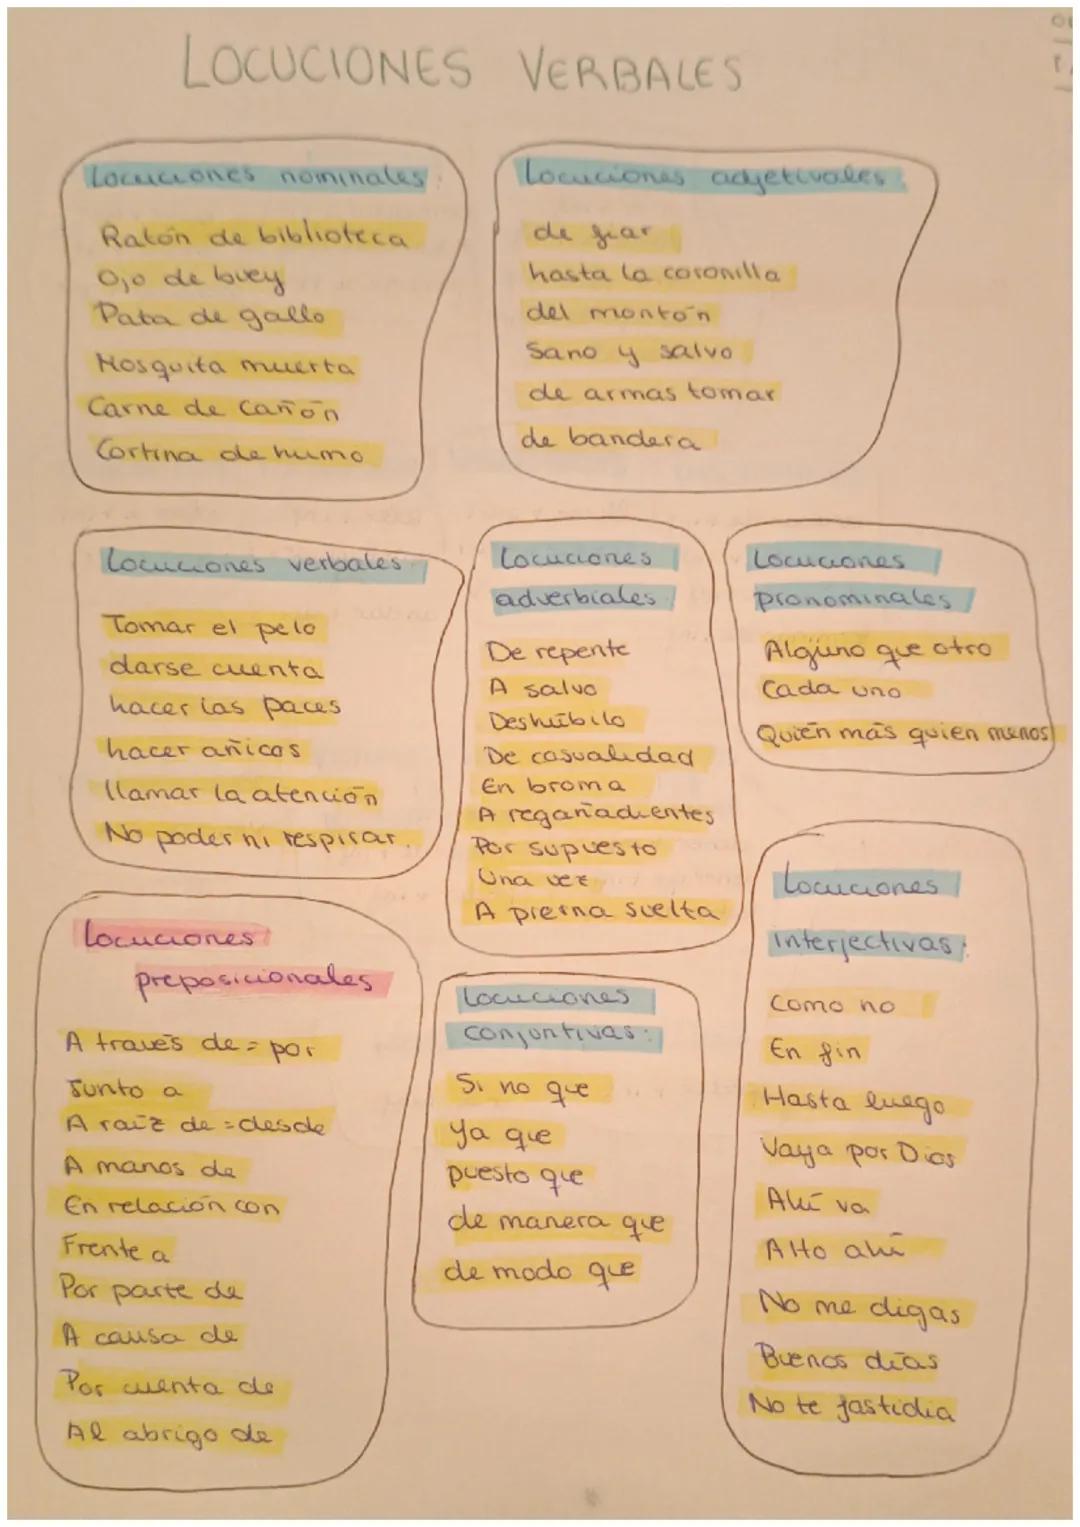 LOCUCIONES VERBALES
Locuciones nominales:
Ratón de biblioteca
Ojo de buey
Pata de gallo
Mosquita muerta
Carne de cañón
Cortina de humo
Locuciones adjetivales:
de fiar
hasta la coronilla
del montón
Sano y salvo
de armas tomar
de bandera
Locuciones verbales:
Tomar el pelo
darse cuenta
hacer las paces
hacer añicos
llamar la atención
No poder ni respirar.
Locuciones
adverbiales:
De repente
A salvo
De casualidad
En broma
A regañadientes
Por supuesto
Una vez
A pierna suelta
Locuciones
pronominales
Alguno que otro
Cada uno
Quién más quien menos
Locuciones
preposicionales
A través de = por
Junto a
A raíz de = desde
A manos de
En relación con
Frente a
Por parte de
A causa de
Por cuenta de
Al abrigo de
Locuciones
conjuntivas:
Si no que
Ya que
puesto que
de manera que
de modo que
Locuciones
interjectivas:
Como no
En fin
Hasta luego
Vaya por Dios
Ahí va
Alto ahí
No me digas
Buenos días
No te fastidia